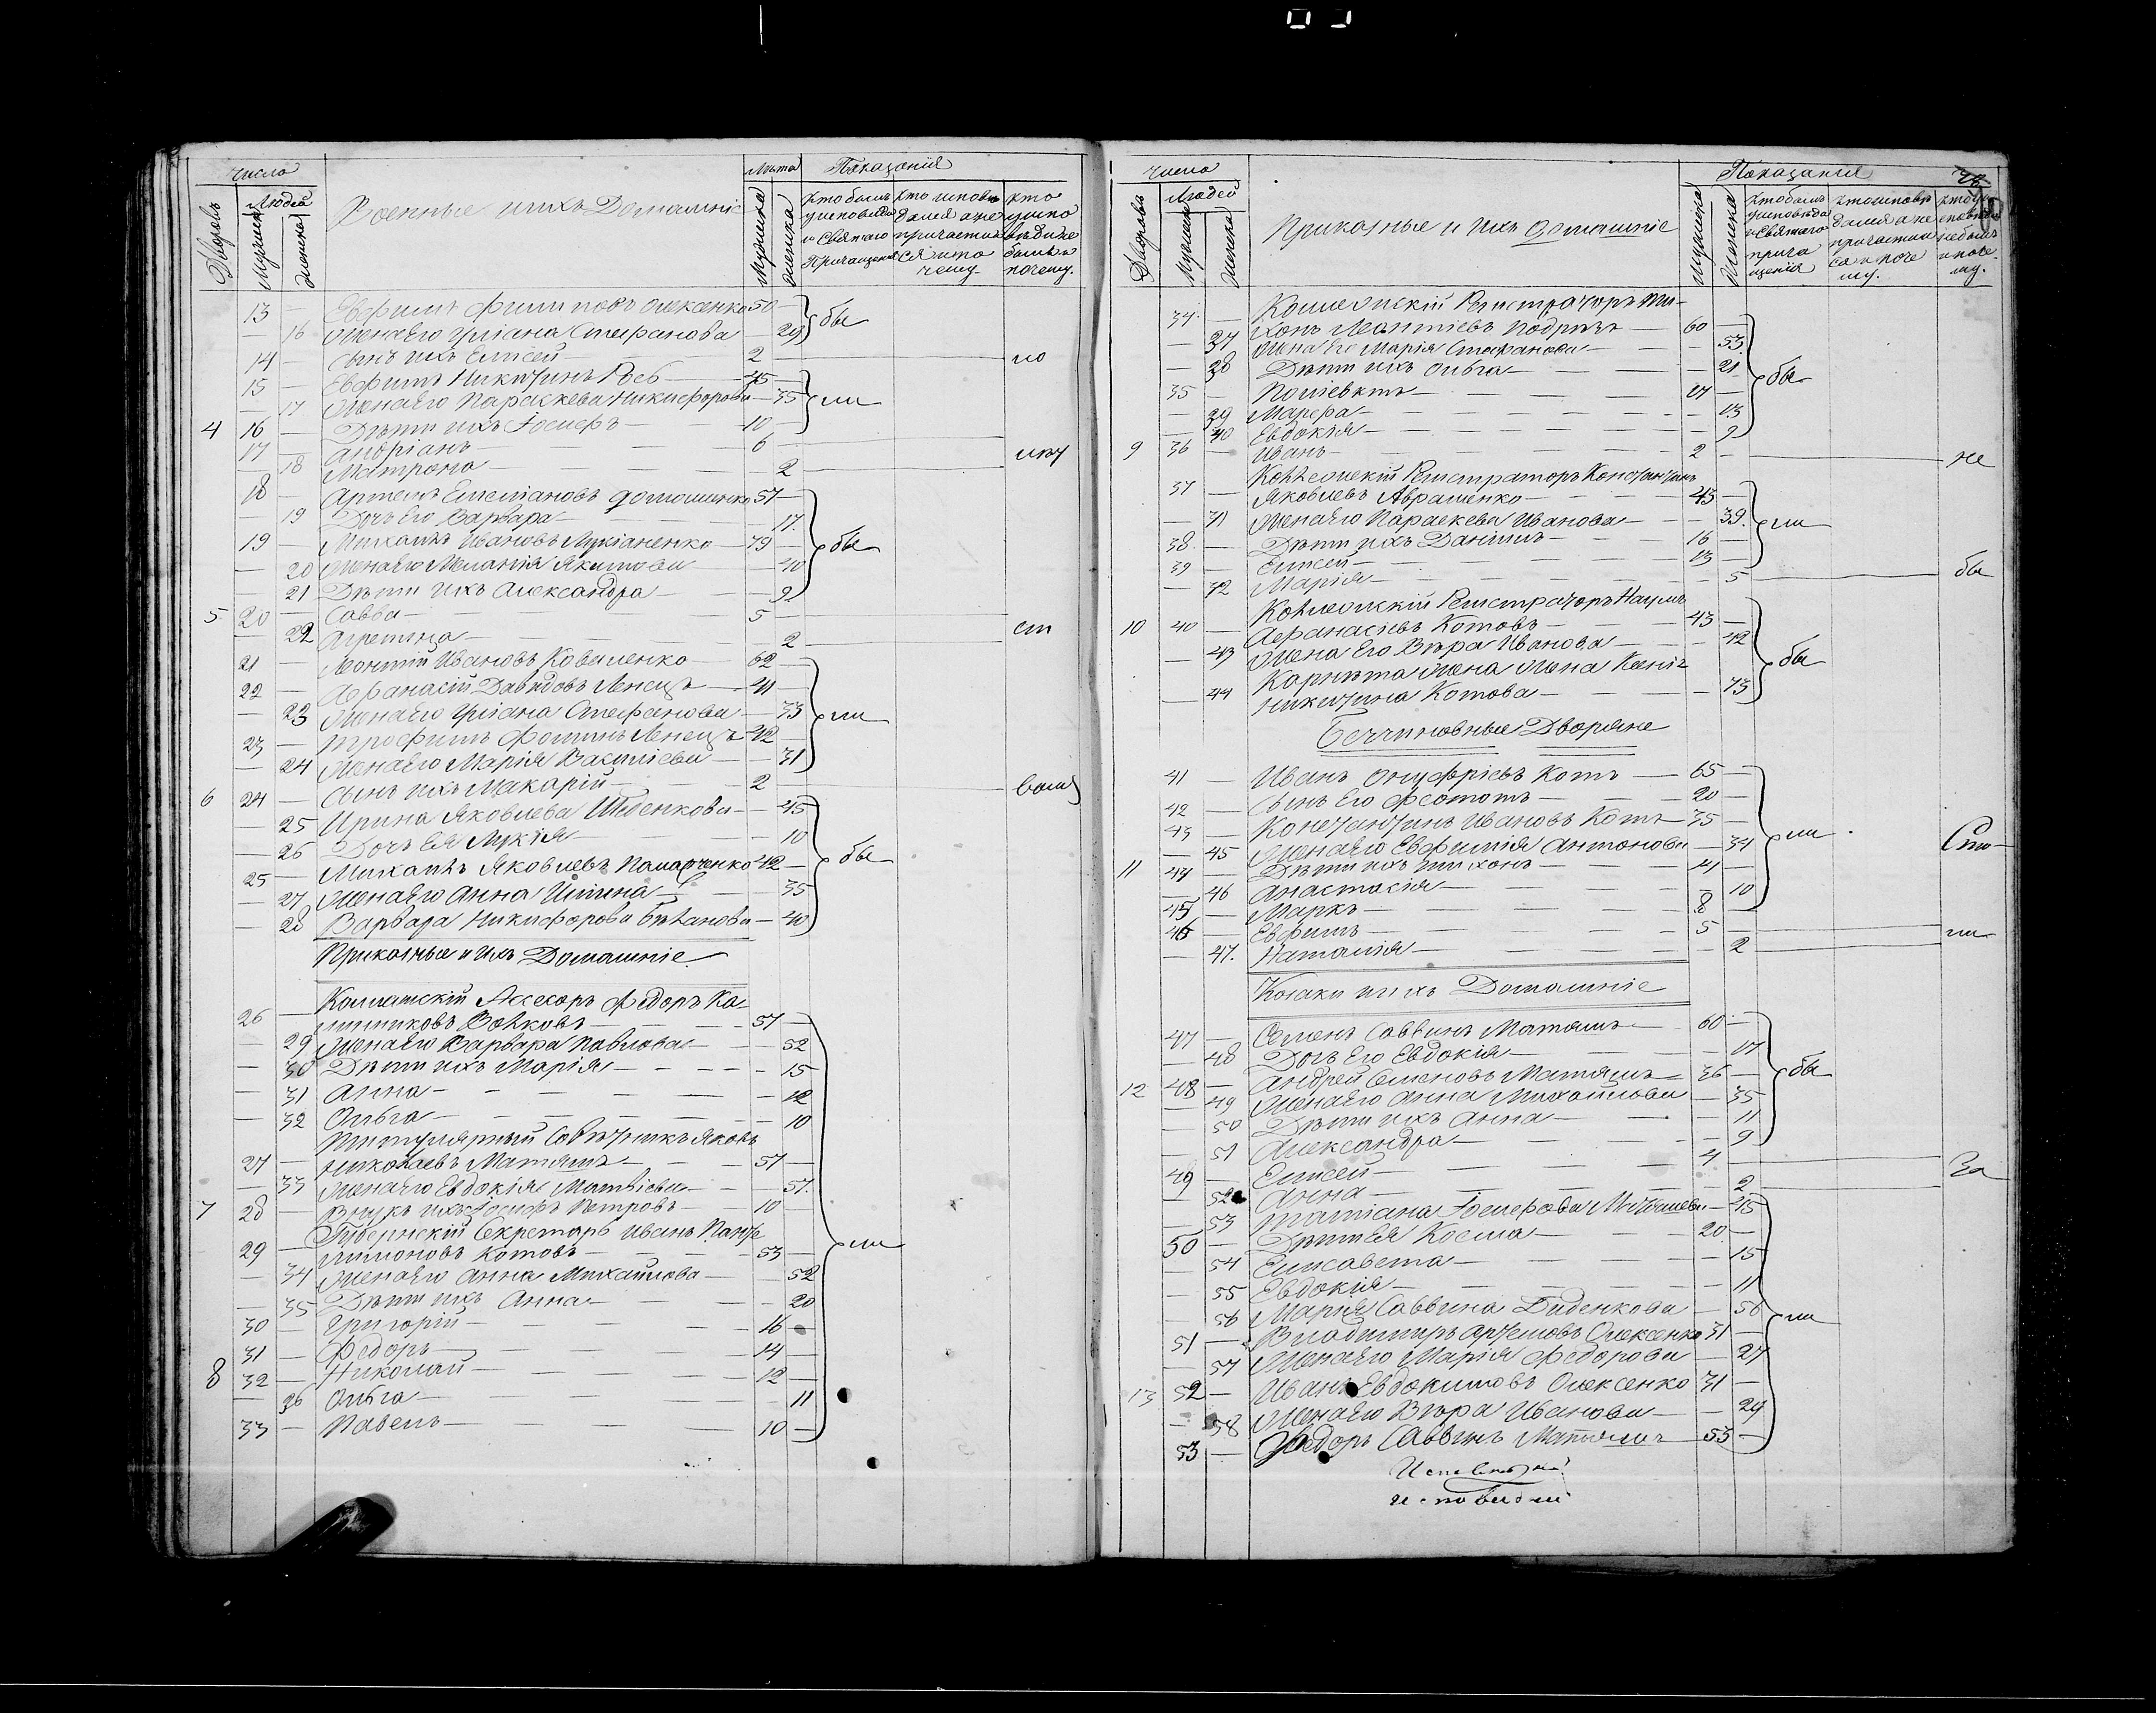 Число
Лѣта
Показанія
Дворовъ
Людей
Мужеска
Женска
Военные и ихъ Домашніе
Мужеска
Женска
Кто былъ
у исповѣди
и Святаго
Причащенія
кто исповѣ
дался а не
причастил
ся и по
чему
кто
у испо
вѣди не
былъ и
почему.
13 — Евфимъ Филиповъ Олексенко 50 — бы
— 16 Жена его Уліана Стефанова — 29
14 — Сынъ ихъ Елисей 2 — по
15 — Евфимъ Никитинъ 45 —
— 17 Жена его Параскева Никифорова — 35 ли
4 16 — Дѣти ихъ Іосифъ 10 —
17 — Андріанъ 6 —
— 18 Матрона — 2
18 — Артемъ Емельяновъ 57 —
— 19 Дочь Его Варвара — 17.
19 — Михаилъ Ивановъ Лукіаненко 79 — бы
— 20 Жена его Меланія Якимова — 40
— 21 Дѣти ихъ Александра — 9
5 20 — Савва 5 —
— 22 Агрепина — 2 ст
21 — Леонтій Ивановъ Коваленко 62 —
22 — Афанасій Давидовъ Ленецъ 41 —
— 23 Жена его Уліана Стефанова — 33 ли
23 — Трофимъ Фоминъ Ленецъ 42 —
— 24 Жена его Марія Василіева — 31
6 24 — Сынъ ихъ Макарій 2 —
— 25 Ирина Яковлева — 45
— 26 Дочь Ея Лукія — 10
25 — Михаилъ Яковлевъ 42 — бы
— 27 Жена его Анна — 35
— 28 Варвара Никифорова — 40
Приказные и ихъ Домашніе.
Коллежскій Ассесоръ Федоръ Ка-
26 — линниковъ Волковъ 57 —
— 29 Жена его Варвара Павлова — 52
— 30 Дѣти ихъ Марія — 15
— 31 Анна — 12
— 32 Ольга — 10
Титулярный Совѣтникъ Яковъ
27 — Николаевъ Матяшъ 57 —
— 33 Жена его Евдокія Матвіева — 57.
7 28 — Внукъ ихъ Іосифъ Петровъ 10 —
Губернскій Секретарь Иванъ Панте
29 — лимоновъ Котовъ 53 — ли
— 34 Жена его Анна Михайлова — 52
— 35 Дѣти ихъ Анна — 20
30 — Григорій 16 —
31 — Федоръ 14 —
8 32 — Николай 12 —
— 36 Ольга — 11
33 — Павелъ 10 —
Число
Показанія
Дворовъ
Людей
Мужеска
Женска
Приказные и Ихъ Домашніе
Мужеска
Женска
Кто былъ
у исповѣди
и Святаго
прича
щенія
кто исповѣ
дался а не
причастил
ся и поче
му.
Коллежскій Регистраторъ Ти-
34. — хонъ Леонтіевъ 60 —
— 37 Жена Его Марія Стефанова — 53.
— 38 Дѣти ихъ Ольга — 21 бы
35 — Поліевктъ 17 —
— 39 Марфа — 13
— 40 Евдокія — 9
9 36 — Иванъ 2 — не
Коллежскій Регистраторъ Константинъ
37 — Яковлевъ Авраменко 43 —
— 41 Жена его Параскева Иванова — 39. ли
38. — Дѣти ихъ Даніилъ 16 —
39 — Елисей 13 —
— 42 Марія — 5 бы
Коллежскій Регистраторъ Наумъ
10 40 — Афанасіевъ Котовъ 43 —
— 43 Жена Его Вѣра Иванова — 42 бы
Жена Ксенія
— 44 Никитина Котова — 73
Безчиновные Дворяне
41 — Иванъ Онуфріевъ Котъ 65 —
42 — Сынъ Его Феототъ 20 —
43 — Константинъ Ивановъ Котъ 35 — ли
— 45 Жена его Евфимія Антонова — 34
11 44 — Дѣти ихъ Тихонъ 11 —
— 46 Анастасія — 10
45 — Маркъ 8 —
46 — Евфимъ 5 — ли
— 47. Наталія — 2
Козаки и ихъ Домашніе
47 — Семенъ Саввинъ Матяшъ 60 —
— 48 Дочь Его Евдокія — 17
12 48 — Андрей Семеновъ Матяшъ 36 — бы
— 49 Жена его Анна Михайлова — 35
— 50 Дѣти ихъ Анна — 11
— 51 Александра — 9
49 — Елисей 4 — За
— 52 Анна — 2
— 53 Татіана Іосифова — 45
50 — Дѣти Ея Косма 20 —
— 54 Елисавета — 15
— 55 Евдокія — 11
— 56 Марія Саввина Диденкова — 56
51 — Владимиръ Артемовъ Олексенко 31 — ли
— 57 Жена его Марія Федорова — 27
13 52 — Иванъ Евдокимовъ Олексенко 31 —
— 58 Жена его Вѣра Иванова — 29
53 — Федоръ Саввинъ Матяшъ 53 —